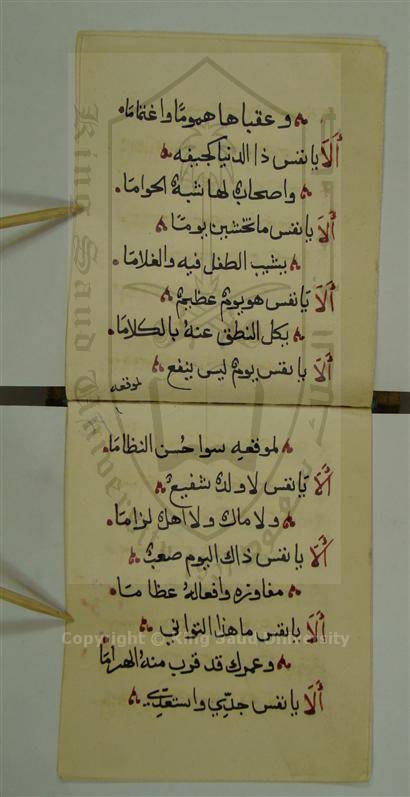 وعقباها هموما واغتماما
ألا يا نفس ذا الدنيا كجيفه
واصحاب لها شبه الحواما
ألا يا نفس ما تخشين يوما
يشيب الطفل فيه والغلاما
ألا يا نفس هو يوم عظيم
يكل النطق عنه بالكلاما
ألا يا نفس يوم ليس ينفع
لموقعه
لموقعه سوا حسن النظاما
ألا يا نفس لا ولد شفيع
ولا مال ولا اهل لزاما
ألا يا نفس ذاك اليوم صعب
مفاوزه وافعاله عظاما
ألا يا نفس ما هذا التواني
وعمرك قد قرب منه الهراما
ألا يا نفس جدي واستعدي
King Saud University
Copyright © King Saud University